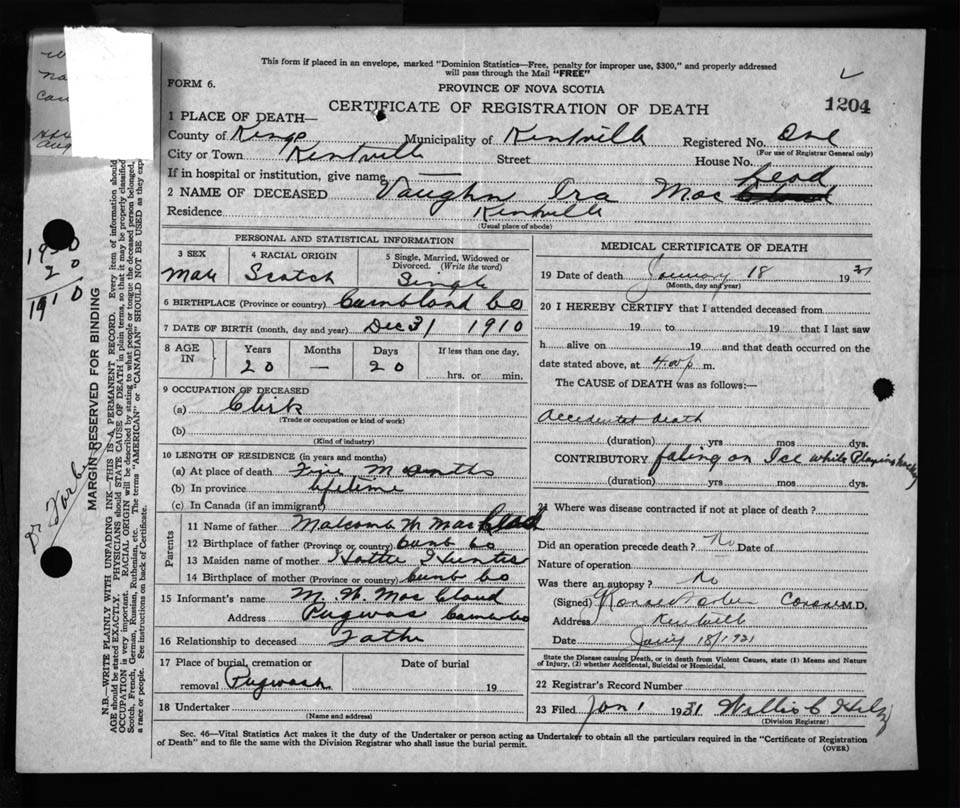 This form if placed in an envelope, marked "Dominion Statistics—Free, penalty for improper use, $300," and properly addressed
will pass through the Mail "FREE"
FORM 6.
PROVINCE OF NOVA SCOTIA
CERTIFICATE OF REGISTRATION OF DEATH
1204
1 PLACE OF DEATH—
County of Kings Municipality of Kentville Registered No. One
(For use of Registrar General only)
City or Town Kentville Street House No.
If in hospital or institution, give name —
2 NAME OF DECEASED Vaughn Ira Mac Leod
Residence Kentville
(Usual place of abode)
PERSONAL AND STATISTICAL INFORMATION
3 SEX 4 RACIAL ORIGIN 5 Single, Married, Widowed or Divorced. (Write the word)
Male Scotch Single
6 BIRTHPLACE (Province or country) Cumbland Co
7 DATE OF BIRTH (month, day and year) Dec 31 1910
8 AGE IN Years Months Days If less than one day.
20 — 20 hrs. or min.
9 OCCUPATION OF DECEASED
(a) Clerk
(Trade or occupation or kind of work)
(b)
(Kind of industry)
10 LENGTH OF RESIDENCE (in years and months)
(a) At place of death Months
(b) In province lifetime
(c) In Canada (if an immigrant)
Parents
11 Name of father Malcomb W Mac Cloud
12 Birthplace of father (Province or country) Cumb Co
13 Maiden name of mother Hattie Hunter
14 Birthplace of mother (Province or country) Cumb Co
15 Informant's name M. W. Mac Cloud
Address Pugwas
16 Relationship to deceased Father
17 Place of burial, cremation or removal Pugwash
Date of burial 19
18 Undertaker
(Name and address)
MEDICAL CERTIFICATE OF DEATH
19 Date of death January 18 1931
(Month, day and year)
20 I HEREBY CERTIFY that I attended deceased from
19 to 19 that I last saw
h alive on 19 and that death occurred on the
date stated above, at 4.00 p m.
The CAUSE of DEATH was as follows:—
Accidental death
(duration) yrs mos dys.
CONTRIBUTORY faling on Ice while Playing hockey
(duration) yrs mos dys.
21 Where was disease contracted if not at place of death?
Did an operation precede death? No Date of
Nature of operation
Was there an autopsy? No
(Signed) Coroner M.D.
Address Kentville
Date Jany 18/1931
State the Disease causing Death, or in death from Violent Causes, state (1) Means and Nature
of Injury, (2) whether Accidental, Suicidal or Homicidal.
22 Registrar's Record Number
23 Filed Jan 1 1931 Willis C
(Division Registrar)
Sec. 46—Vital Statistics Act makes it the duty of the Undertaker or person acting as Undertaker to obtain all the particulars required in the "Certificate of Registration
of Death" and to file the same with the Division Registrar who shall issue the burial permit.
(OVER)
MARGIN RESERVED FOR BINDING
N.B.—WRITE PLAINLY WITH UNFADING INK—THIS IS A PERMANENT RECORD. Every item of information should
AGE should be stated EXACTLY. PHYSICIANS should STATE CAUSE OF DEATH in plain terms, so that it may be properly classified
OCCUPATION is very important. RACIAL ORIGIN will be described by stating to what people or tongue the deceased person belonged,
Scotch, French, German, Russian, Ruthenian, etc. The terms "AMERICAN" or "CANADIAN" SHOULD NOT BE USED as they exp
a race or people. See instructions on back of Certificate.
1930
20
1910